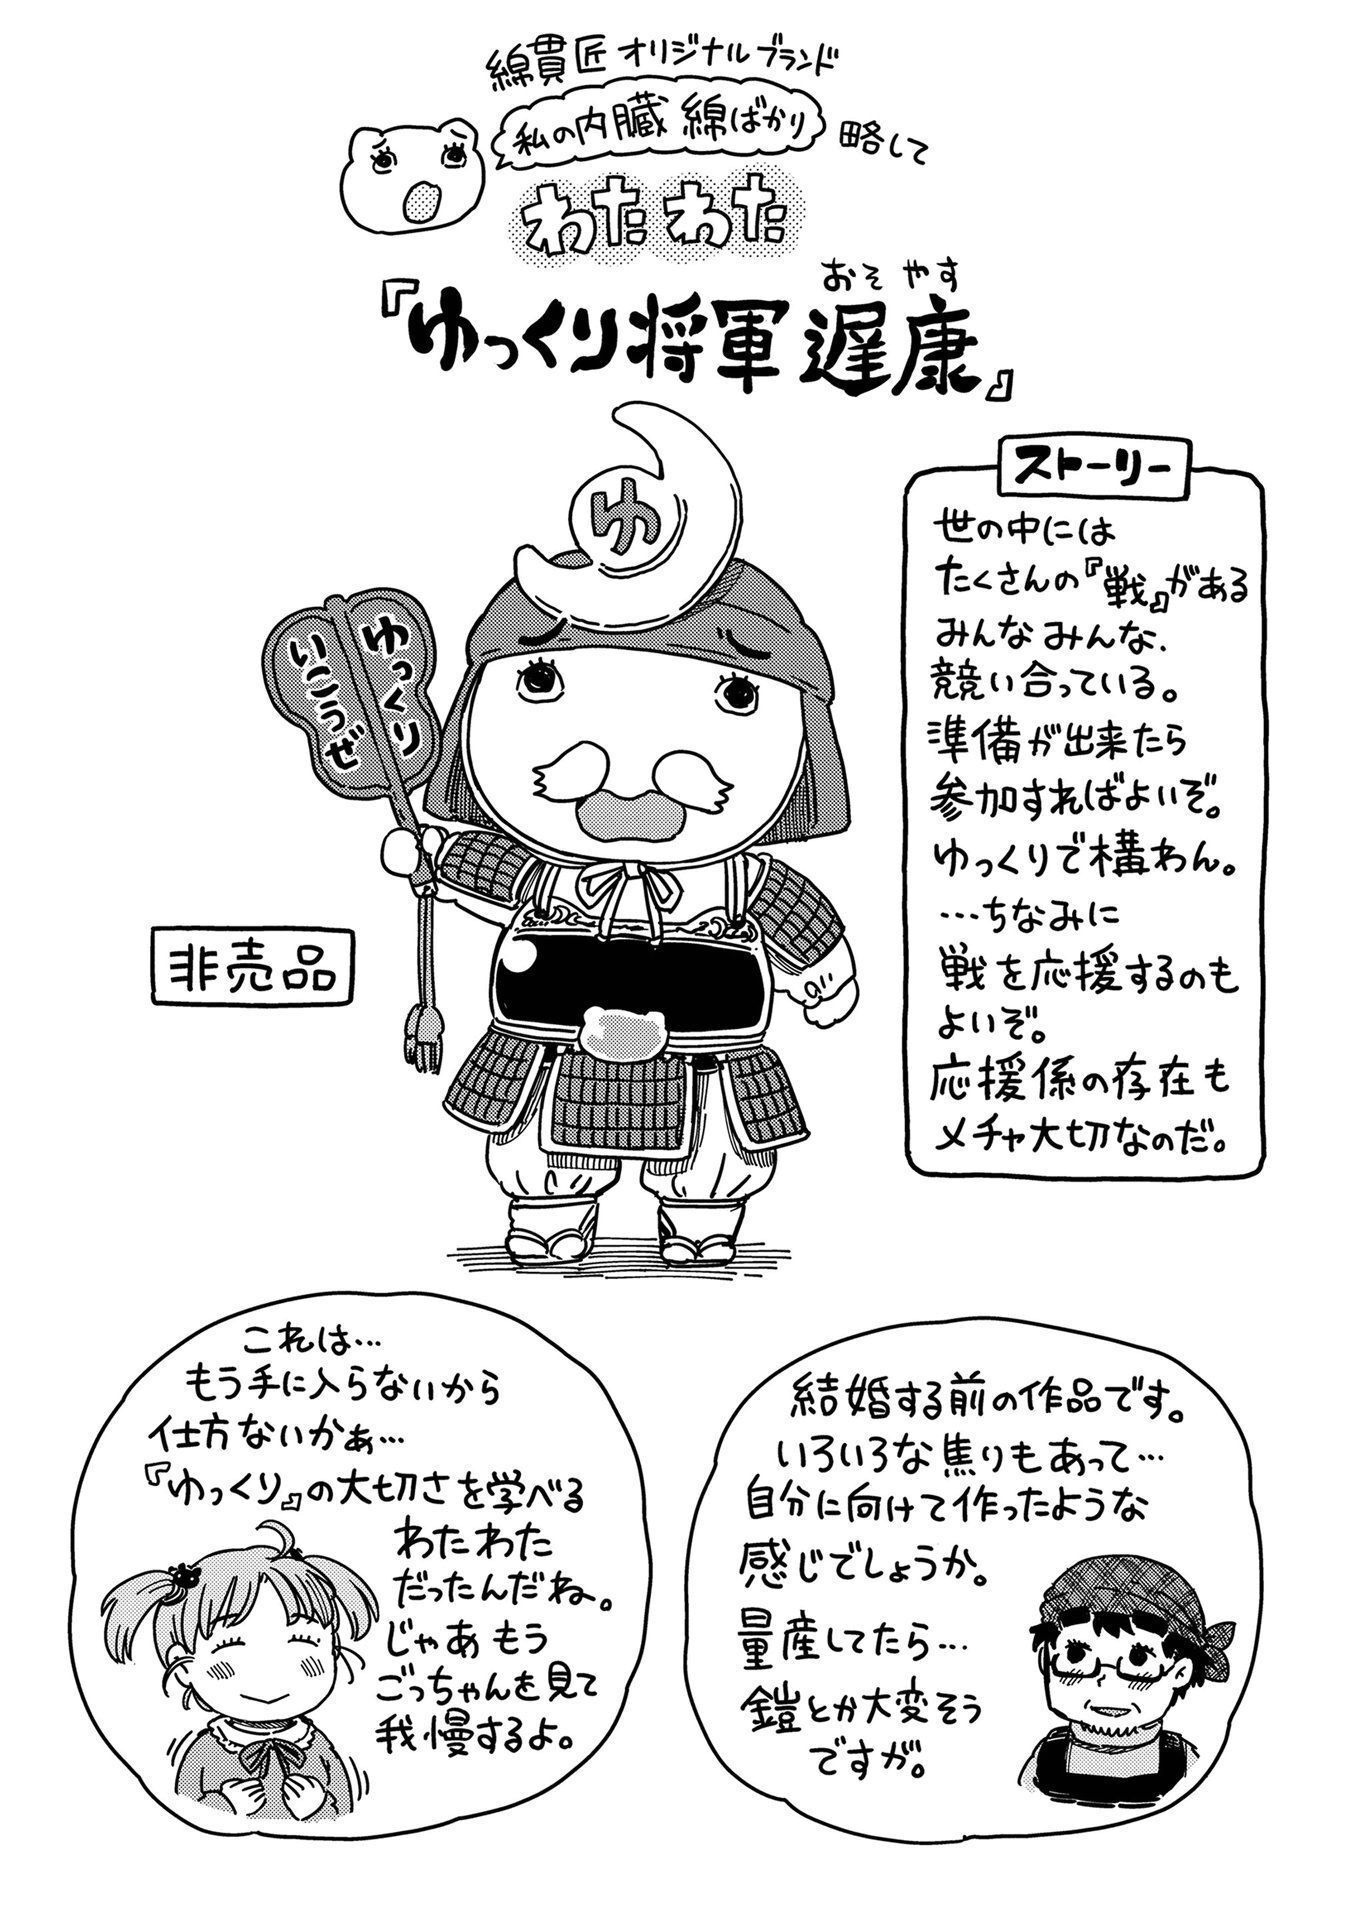 綿貫匠オリジナルブランド
私の内臓 綿ばかり 略して
わたわた
おそ やす
『ゆっくり将軍 遅康』
ゆ
ゆっくり
いこうぜ
非売品
ストーリー
世の中には
たくさんの『戦』がある
みんなみんな、
競い合っている。
準備が出来たら
参加すればよいぞ。
ゆっくりで構わん。
…ちなみに
戦を応援するのも
よいぞ。
応援係の存在も
メチャ大切なのだ。
これは…
もう手に入らないから
仕方ないかぁ…
『ゆっくり』の大切さを学べる
わたわた
だったんだね。
じゃあもう
ごっちゃんを見て
我慢するよ。
結婚する前の作品です。
いろいろな焦りもあって…
自分に向けて作ったような
感じでしょうか。
量産してたら…
鎧とか大変そう
ですが。